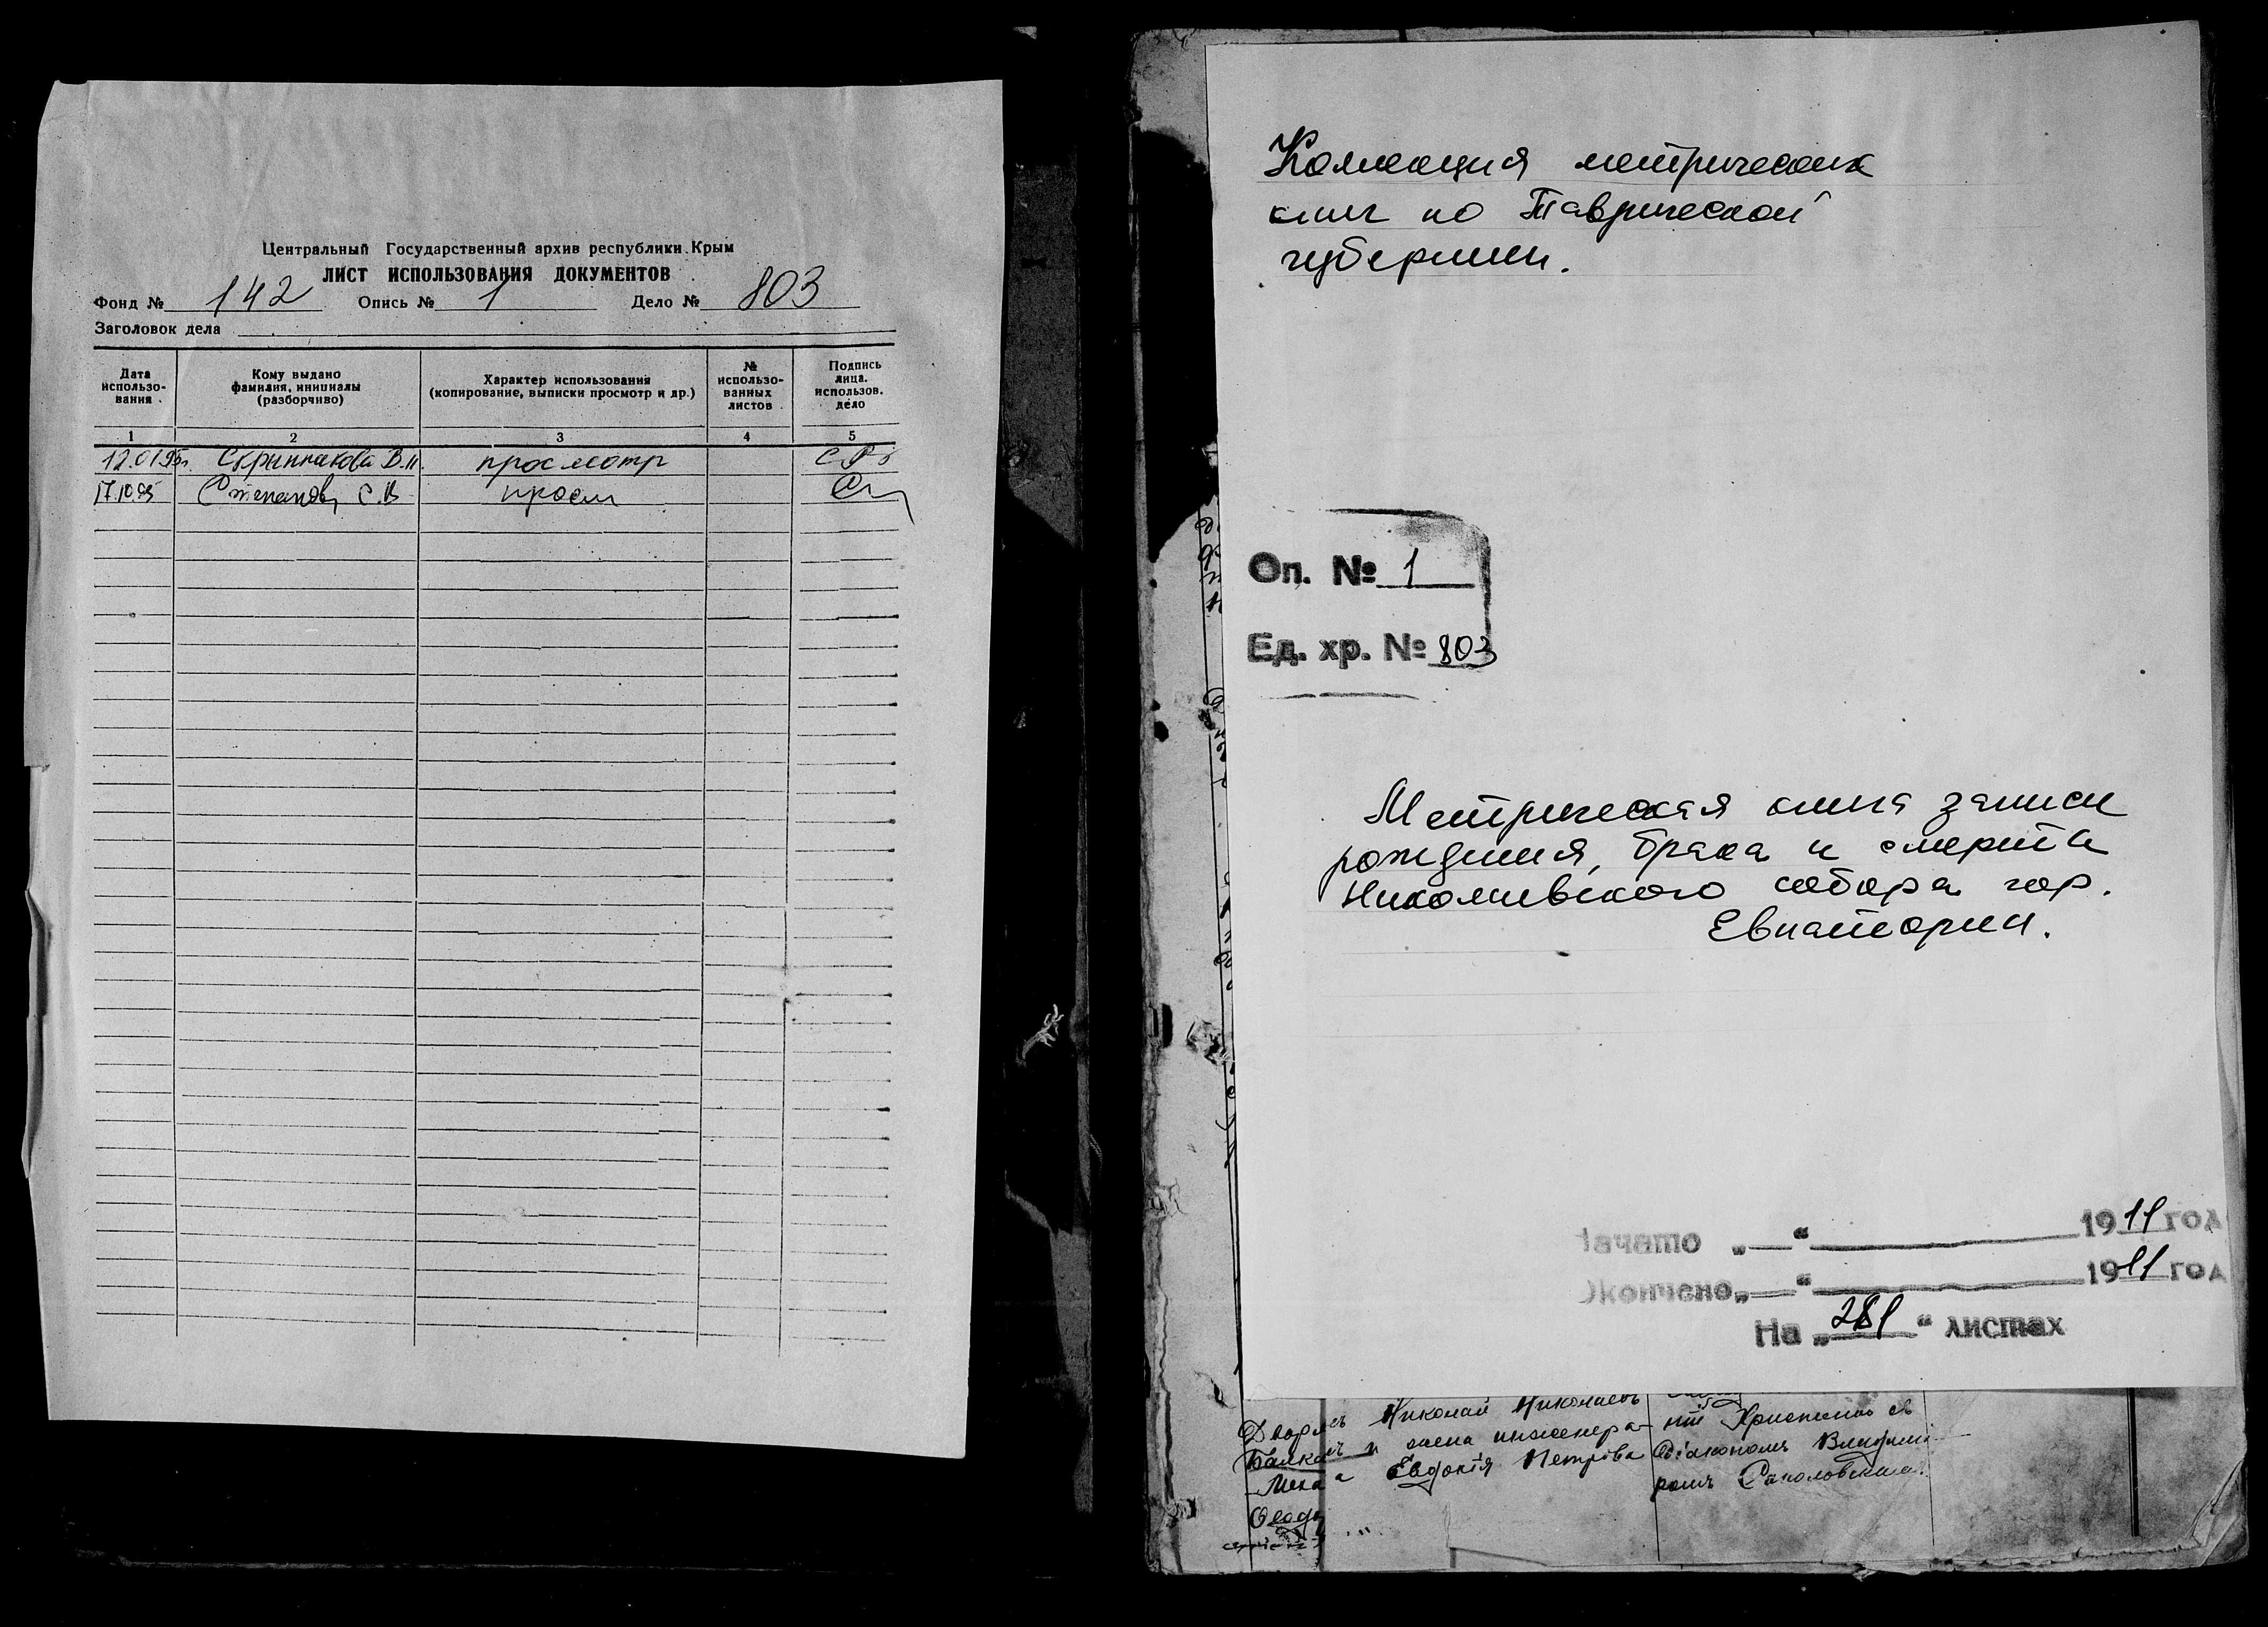 Центральный Государственный архив республики Крым
ЛИСТ ИСПОЛЬЗОВАНИЯ ДОКУМЕНТОВ
Фонд № 142 Опись № 1 Дело № 803
Заголовок дела
Дата использо-вания
Кому выдано фамилия, инициалы (разборчиво)
Характер использования (копирование, выписки просмотр и др.)
№ использо-ванных листов
Подпись лица. использов. дело
1 2 3 4 5
12.01.95г. Скрипникова В.Н. просмотр
17.10.95 Степанов С.В просм
Коллекция метрических
книг по Таврической
губернии.
Оп. № 1
Ед. хр. № 803
Метрическая книга записи
рождения, брака и смерти
Николаевского собора гор.
Евпатории.
Начато „ “ 1911 год
Окончено „ “ 1911 год
На „281“ листах
Николай Николаевъ
и жена инженера
Евдокія Петрова
Діакономъ Владими
ромъ Соколовскимъ.